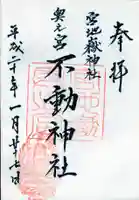 奉拝
宮地嶽神社
奥之宮
不動神社
平成二十年一月廿七日